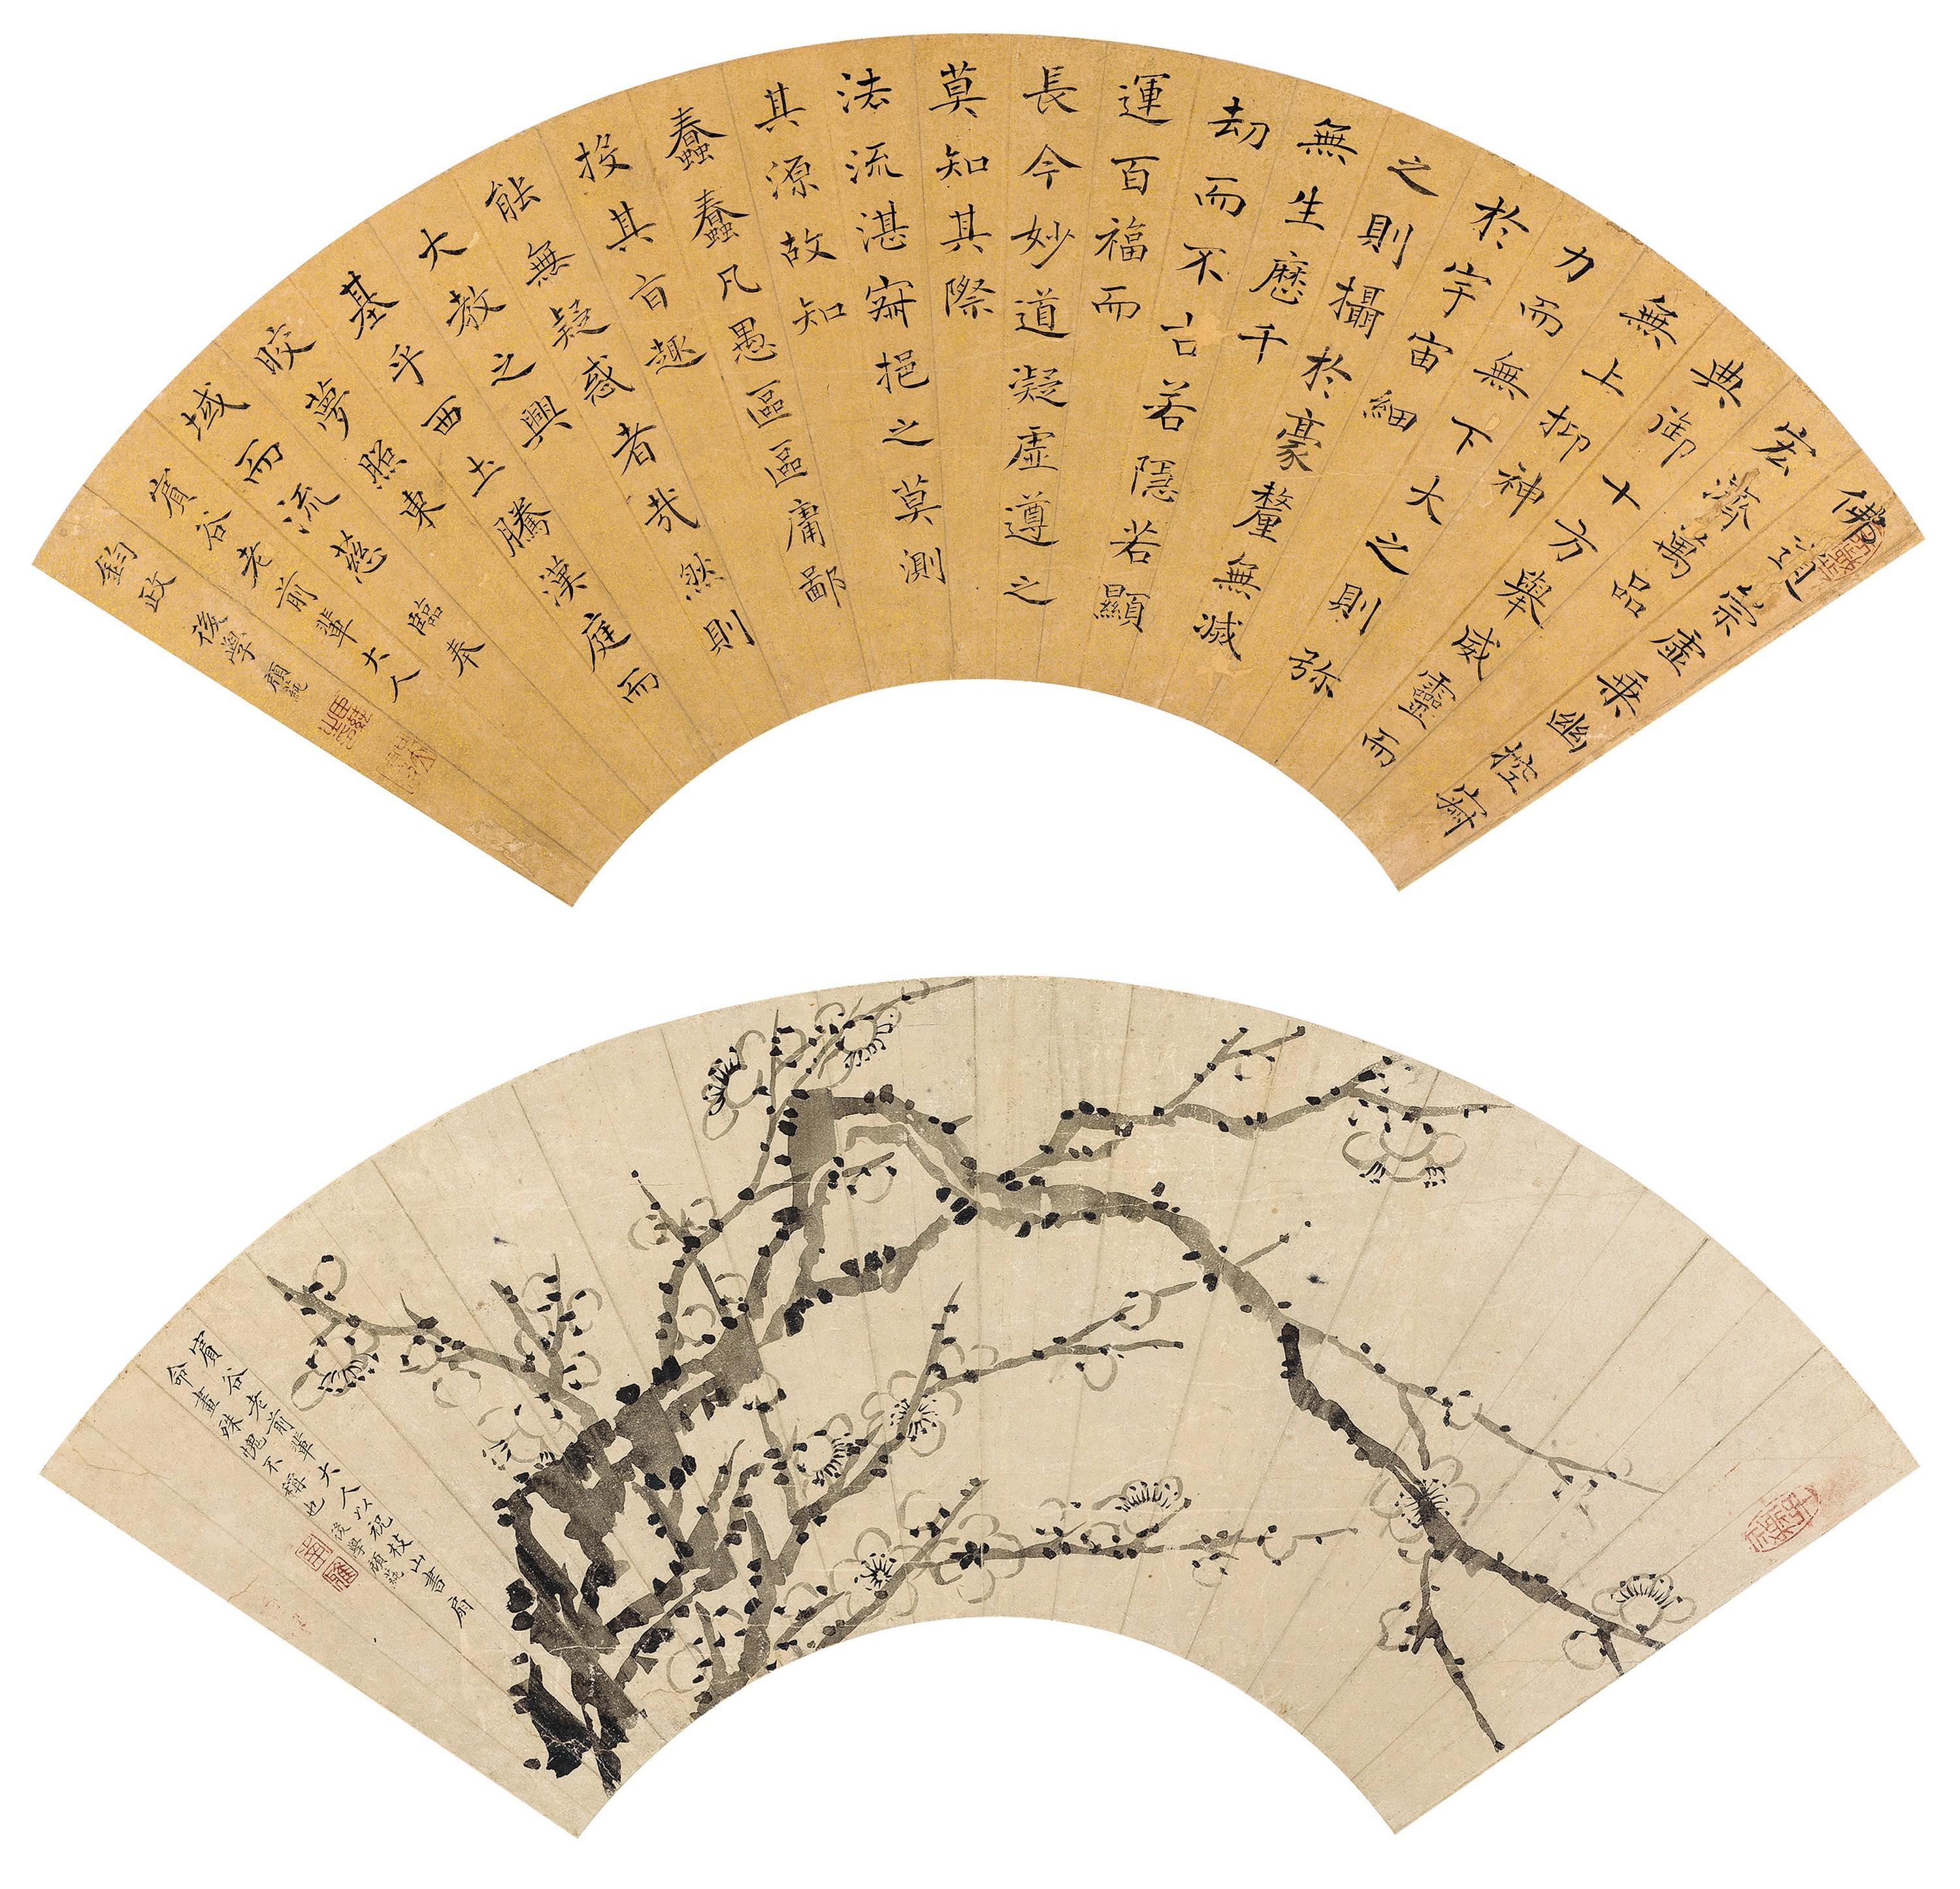 佛道崇虛乘幽控寂
宏濟萬品
典御十方舉威靈而
無上抑神
力而無下大之則弥
於宇宙細
之則攝於豪釐無滅
無生歷千
劫而不古若隱若顯
運百福而
長今妙道凝虛遵之
莫知其際
法流湛寂挹之莫測
其源故知
蠢蠢凡愚區區庸鄙
投其旨趣
能無疑惑者哉然則
大教之興
基乎西土騰漢庭而
皎夢照東
域而流慈 臨奉
賓谷老前輩大人
鈞政 後學顧蒓
賓谷老前輩大人以祝枝山書扇
命畫殊愧不稱也 後學顧蒓
南雅